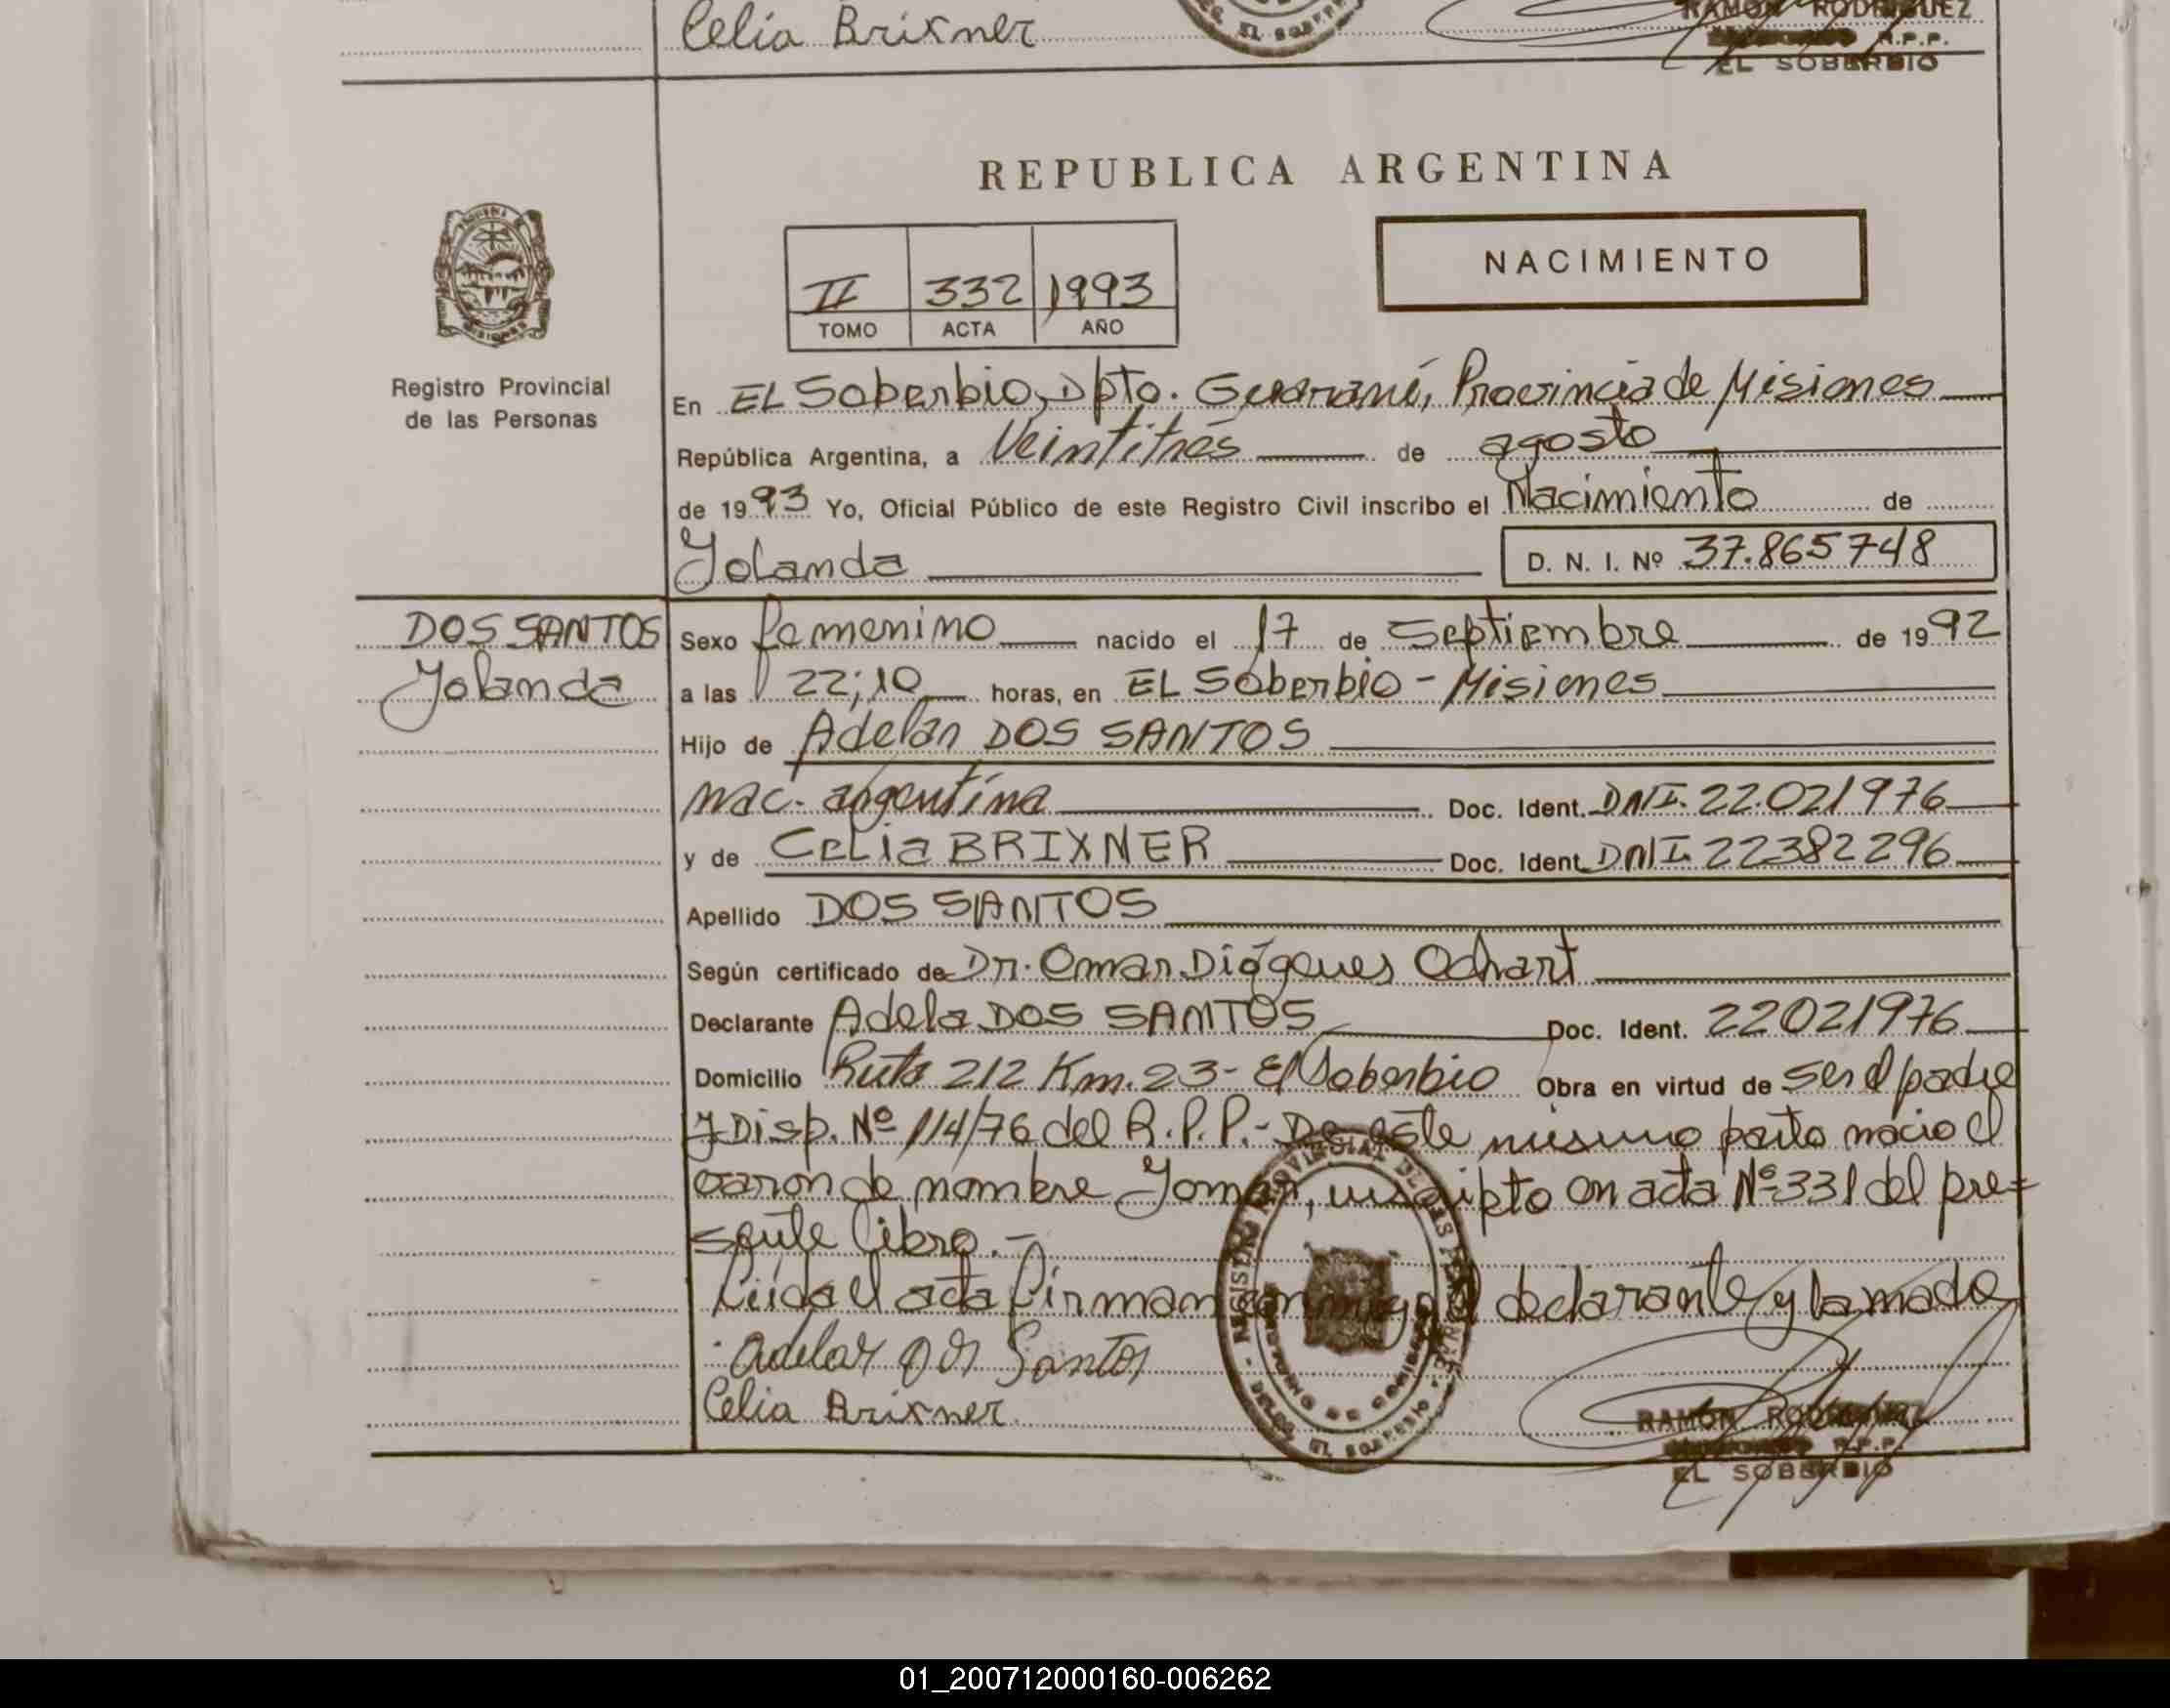 Celia Brixner
RAMON RODRIGUEZ
R.P.P.
EL SOBERBIO
REPUBLICA ARGENTINA
NACIMIENTO
II 332 1993
TOMO ACTA AÑO
Registro Provincial
de las Personas
En EL Soberbio, Dpto. Guaraní, Provincia de Misiones
República Argentina, a Veintitrés de agosto
de 1993 Yo, Oficial Público de este Registro Civil inscribo el Nacimiento de
Yolanda D. N. I. Nº 37.865748
DOS SANTOS
Yolanda
Sexo femenino nacido el 17 de Septiembre de 1992
a las 22;10 horas, en EL Soberbio - Misiones
Hijo de Adelar DOS SANTOS
nac. argentina Doc. Ident. DNI. 22.021976
y de Celia BRIXNER Doc. Ident. DNI. 22382296
Apellido DOS SANTOS
Según certificado de Dr. Omar Diógenes Odhart
Declarante Adela DOS SANTOS Doc. Ident. 22021976
Domicilio Ruta 212 Km. 23 - El Soberbio Obra en virtud de ser el padre
y Disp. Nº 114/76 del R.P.P.- De este mismo parto nacio el
varón de nombre Yomar, inscripto en acta Nº 331 del pre=
sente libro.-
Leída el acta firman conmigo el declarante y la madre
Adelar Dos Santos
Celia Brixner
RAMON RODRIGUEZ
R.P.P.
EL SOBERBIO
01_200712000160-006262